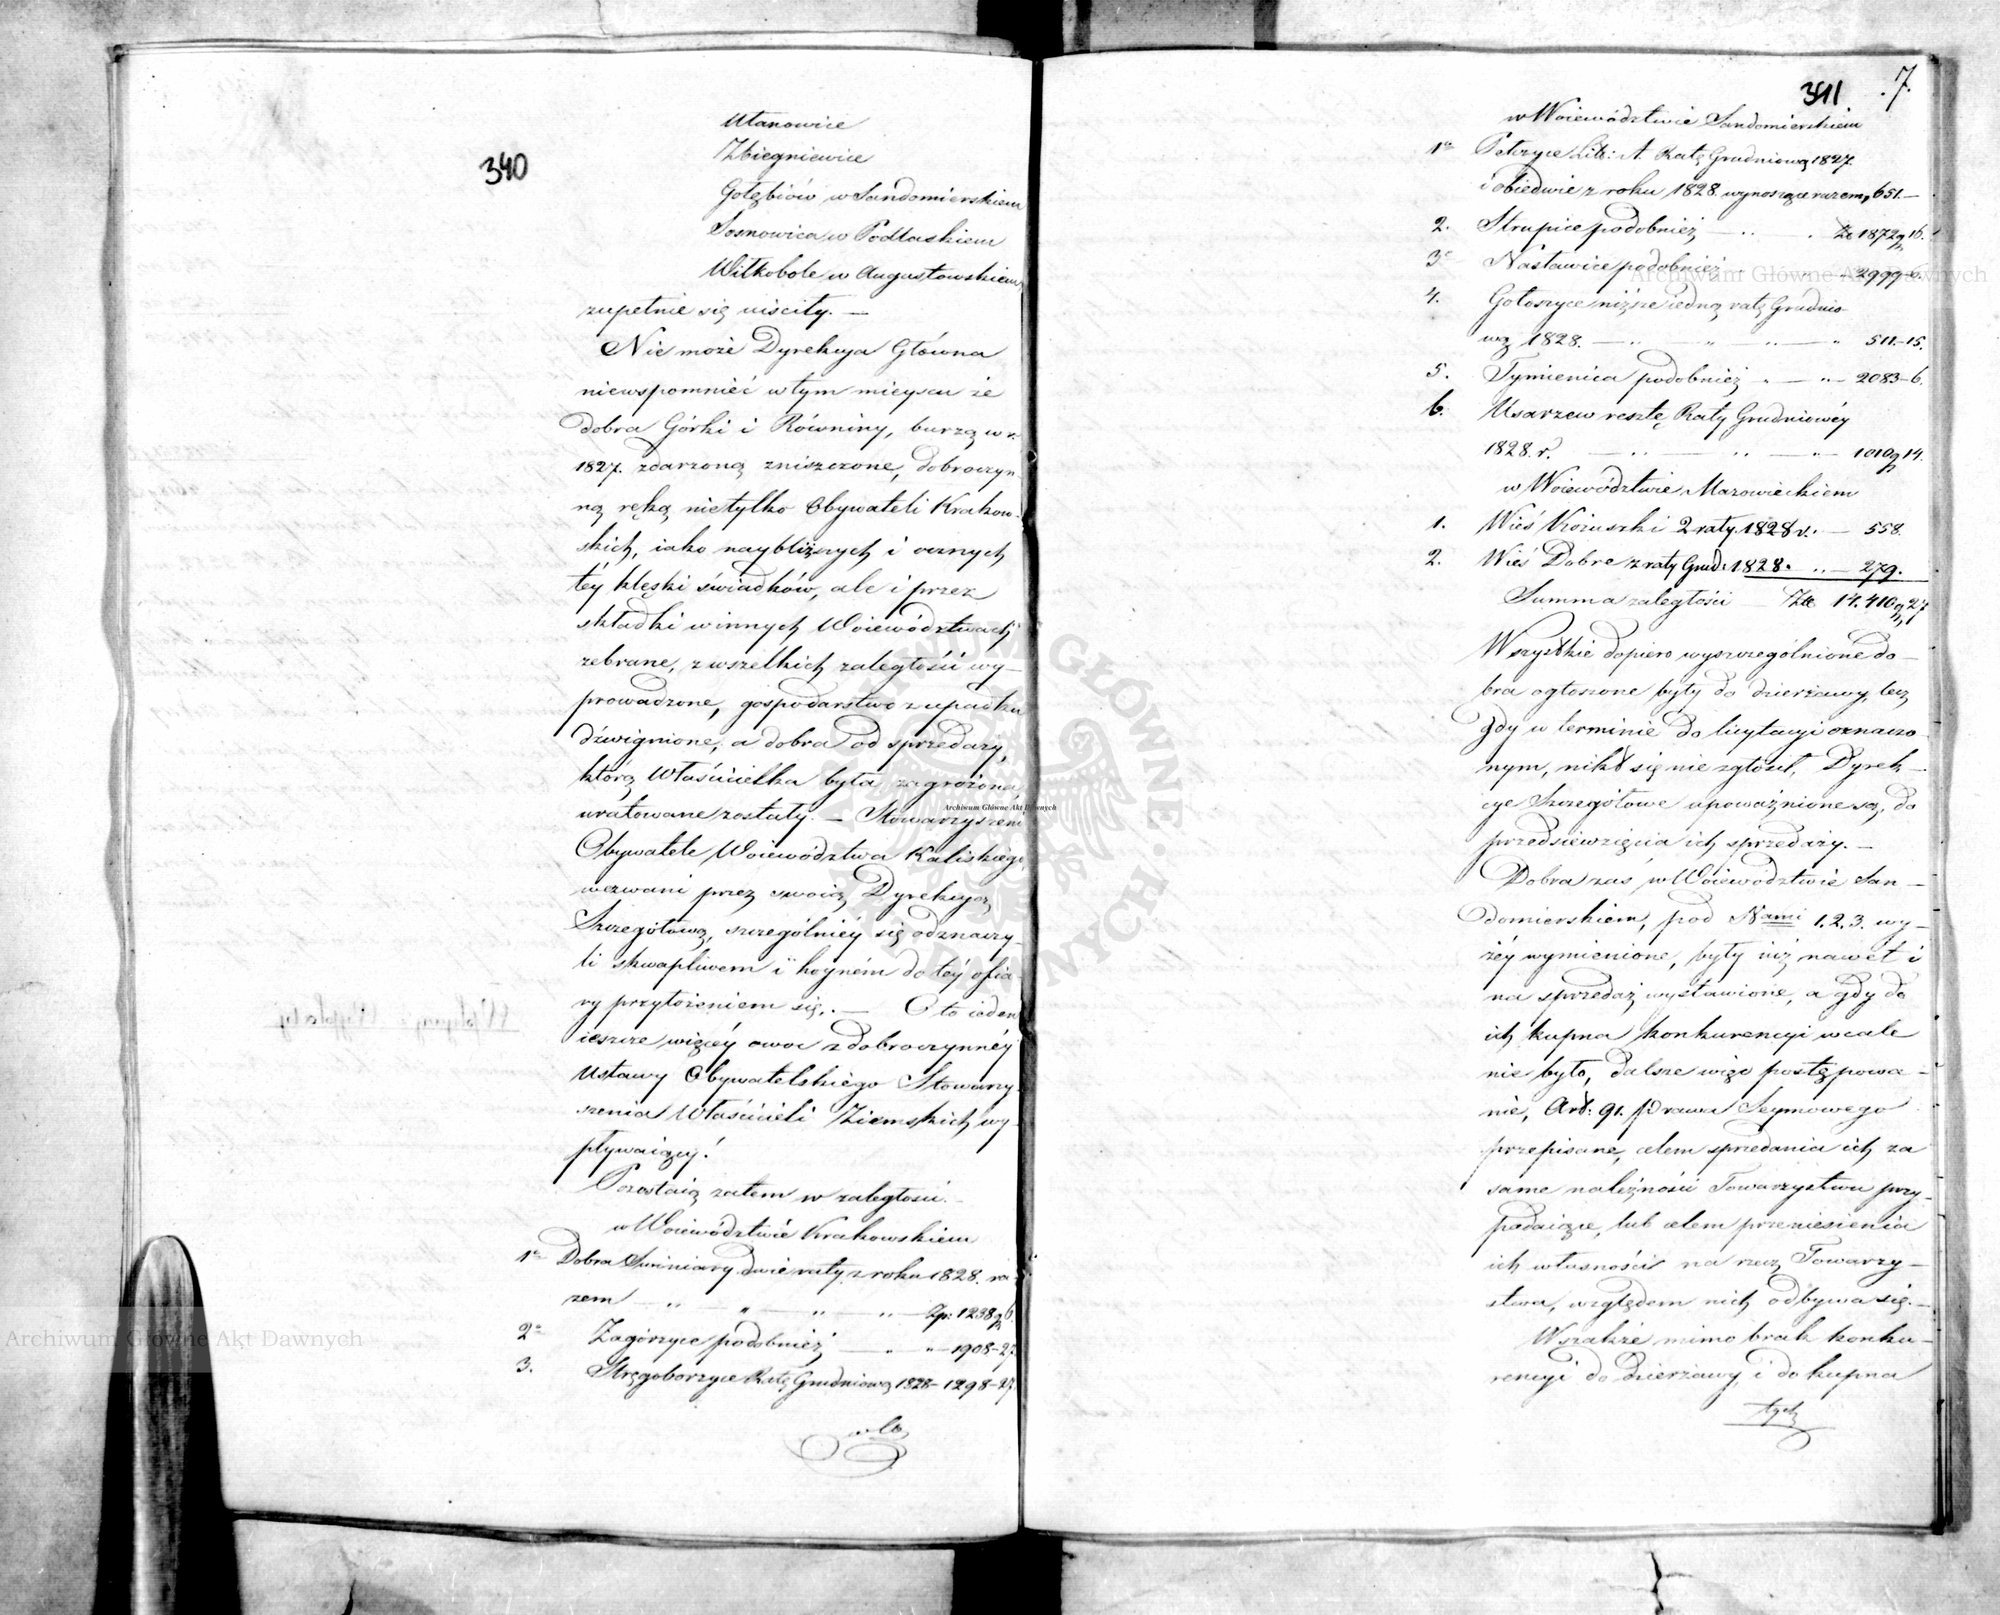 340
Utanowice
Zbiegniewice
Gołębiów w Sandomierskiem
Sosnowica w Podlaskiem
Wilkobole w Augustowskiem,
zupełnie się uiściły. —
Nie może Dyrekcya Główna
niewspomnieć w tym mieyscu że
dobra Górki i Równiny, burzą w r.
1827. zdarzoną zniszczone, dobroczyn-
ną ręką nietylko Obywateli Krakow-
skich, iako naybliższych i ocznych
téy klęski świadków, ale i przez
składki w innych Woiewództwach
zebrane, z wszelkich zaległości wy-
prowadzone, gospodarstwo z upadku
dźwignione, a dobra od sprzedaży,
którą Właścicielka była zagrożona,
uratowane zostały. — Stowarzyszeni
Obywatele Woiewództwa Kaliskiégo,
wezwani przez swoią Dyrekcyą
Szczegółową, szczególniéy się odznaczy-
li skwapliwem i hoyném do téy ofia-
ry przyłożeniem się. — Oto ieden
ieszcze więcéy owoc z dobroczynnéy
Ustawy Obywatelskiégo Stowarzy-
szenia Właścicieli Ziemskich wy-
pływaiący!
Pozostaią zatem w zaległości.
w Woiewództwie Krakowskiem
1o Dobra Świniary dwie raty z roku 1828. ra-
zem — „ — „ — „ — „ — Zp: 1238 g 6.
2o Zagórzyce podobnież — „ — „ — 1908-27.
3. Stręgoborzyce Ratę Grudniową 1828 — 1298-27.
341. 7.
w Woiewództwie Sandomierskiem
1o Petrzyce Lit: A. Ratę Grudniową 1827.
i obiedwie z roku 1828. wynoszące razem, 651.—
2. Strupice podobnież — „ . Zł 1872 g 16.
3o Nastawice podobnież — „ — 2999-6.
4. Gołoszyce niższe iedną ratę Grudnio-
wą 1828. — „ — „ — „ — „ 511-15.
5. Tymienica podobnież „ — „ — 2083-6.
6. Usarzew resztę Raty Grudniowéy
1828. r. — „ — „ — „ — 1010 g 14.
w Woiewództwie Mazowieckiem
1. Wieś Kozuszki 2 raty 1828 r. — 558.
2. Wieś Dobre z raty Grud: 1828. „ — 279.
Summa zaległości — Złł 14.410 g 27
Wszystkie dopiero wyszczególnione do-
bra ogłoszone były do dzierżawy, lecz
gdy w terminie do licytacyi oznaczo-
nym, nikt się nie zgłosił, Dyrek-
cye Szczegółowe upoważnione są, do
przedsiewzięcia ich sprzedaży. —
Dobra zaś w Woiewództwie San-
domierskiem, pod Nami 1. 2. 3. wy-
żéy wymienione, były iuż nawet i
na sprzedaż wystawione, a gdy do
ich kupna konkurencyi wcale
nie było, dalsze więc postępowa-
nie, Art: 91. Prawa Seymowego
przepisane, celem sprzedania ich za
same należności Towarzystwu przy-
padaiące, lub celem przeniesienia
ich własności na rzecz Towarzy-
stwa, względem nich odbywa się. —
Wszakże mimo brak konku-
rencyi do dzierżawy i do kupna
tych
Archiwum Główne Akt Dawnych
Archiwum Główne Akt Dawnych
Archiwum Główne Akt Dawnych